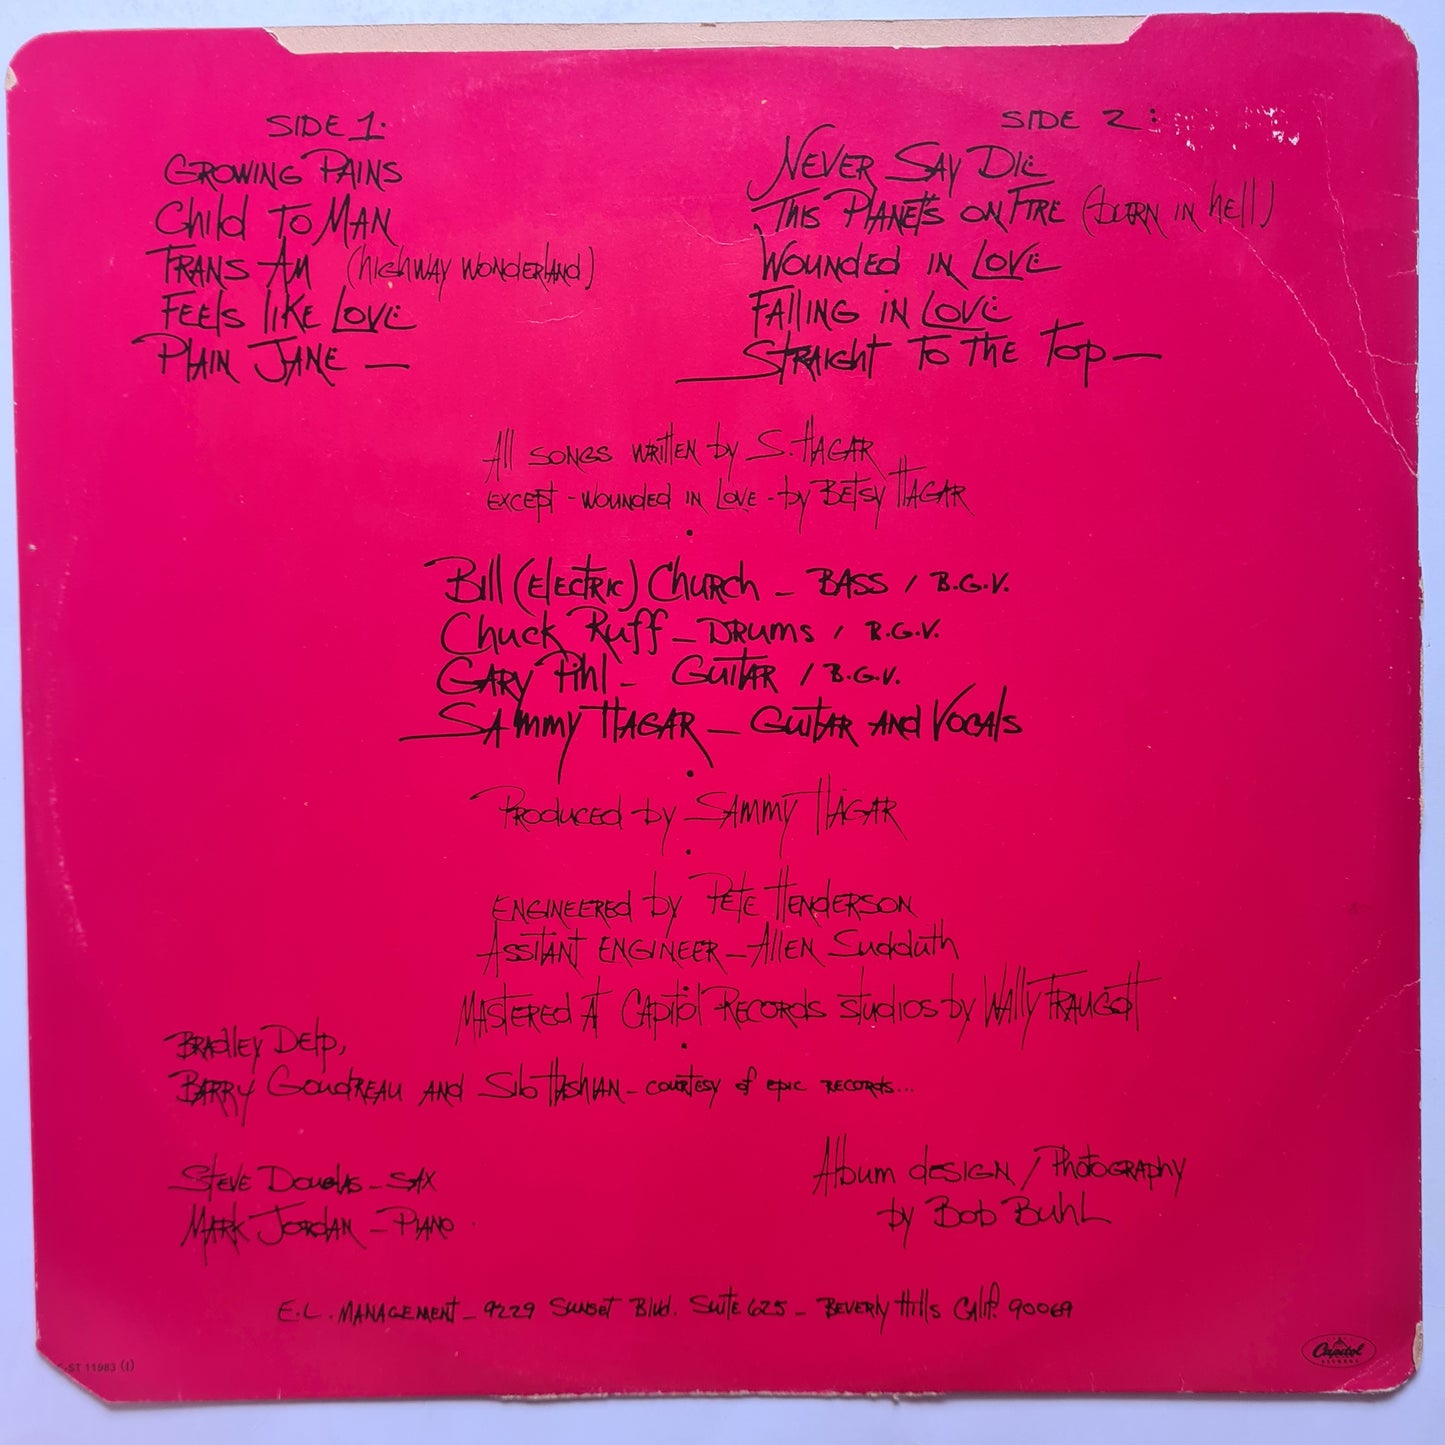 SIDE 1.
GROWING PAINS
Child TO MAN
TRANS AM (highway wonderland)
FEEls likE LOVE
PlAIN JANE —
SIDE 2:
NEVER SAY DIE
THIS PLANET'S ON FIRE (burn in hell)
WOUNDED IN LOVE
FAlliNG iN LOVE
STRAIGHT TO THE TOP —
All SONGS WRITTEN by S. HAGAR
EXCEPT - WOUNDED IN LOVE - by BETSY HAGAR
Bill (ElECTRIC) ChURCH — BASS / B.G.V.
Chuck Ruff — DRUMS / B.G.V.
GARY Pihl — GUITAR / B.G.V.
SAMMY HAGAR — GUITAR AND VOCAls
PRODUCED by SAMMY HAGAR
ENGINEERED by PETE HENDERSON
ASSITANT ENGINEER — AllEN Sudduth
MASTERED AT CAPITOL RECORDS studios by WAlly TRAUGOTT
BRADlEY DElp,
BARRY GOUDREAU AND Sib HASHIAN — COURTESY of EPIC RECORDS...
STEVE DOUGlAS — SAX
MARK JORDAN — PIANO
Album dESIGN / PhOTOGRAPhy
by BOB BUhL
E.L. MANAGEMENT — 9229 SUNSET Blvd. SUITE 625 — BEVERly Hills CAlif. 90069
E-ST 11983 (1)
Capitol
RECORDS